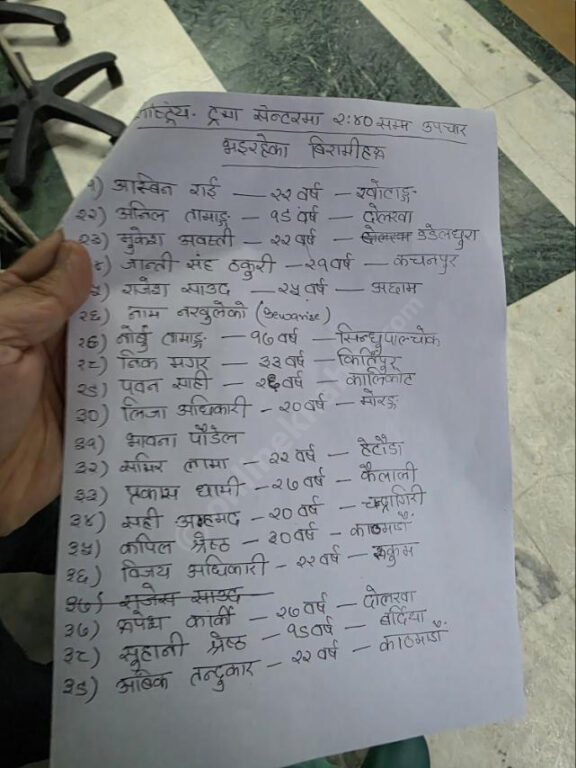 राष्ट्रिय ट्रमा सेन्टरमा २:४० सम्म उपचार
भइरहेका बिरामीहरू
२१) आस्बिन राई — २२ वर्ष — खोटाङ
२२) अनिल तामाङ — १८ वर्ष — दोलखा
२३) मुकेश अवस्ती — २२ वर्ष — डडेलधुरा
२४) जान्ती संह ठकुरी — २१ वर्ष — कंचनपुर
२५) राजेश साउद — २५ वर्ष — अछाम
२६) नाम नखुलेको
२७) नोर्बु तामाङ — १७ वर्ष — सिन्धुपाल्चोक
२८) निक मगर — ३३ वर्ष — किर्तिपुर
२९) पवन साही — २६ वर्ष — कालिकोट
३०) लिजा अधिकारी — २० वर्ष — मोरङ
३१) भावना पौडेल
३२) समिर लामा — २२ वर्ष — हेटौडा
३३) प्रकास धामी — २७ वर्ष — कैलाली
३४) सही अहमद — २० वर्ष — चन्द्रागिरी
३५) कपिल श्रेष्ठ — ३० वर्ष — काठमाडौं
३६) विजय अधिकारी — २२ वर्ष — रुकुम
३७) राजेस साउद
३७) रुपेश कार्की — २७ वर्ष — दोलखा
३८) सुहानी श्रेष्ठ — १८ वर्ष — बर्दिया
३९) अबिक तन्दुकार — २२ वर्ष — काठमाडौं